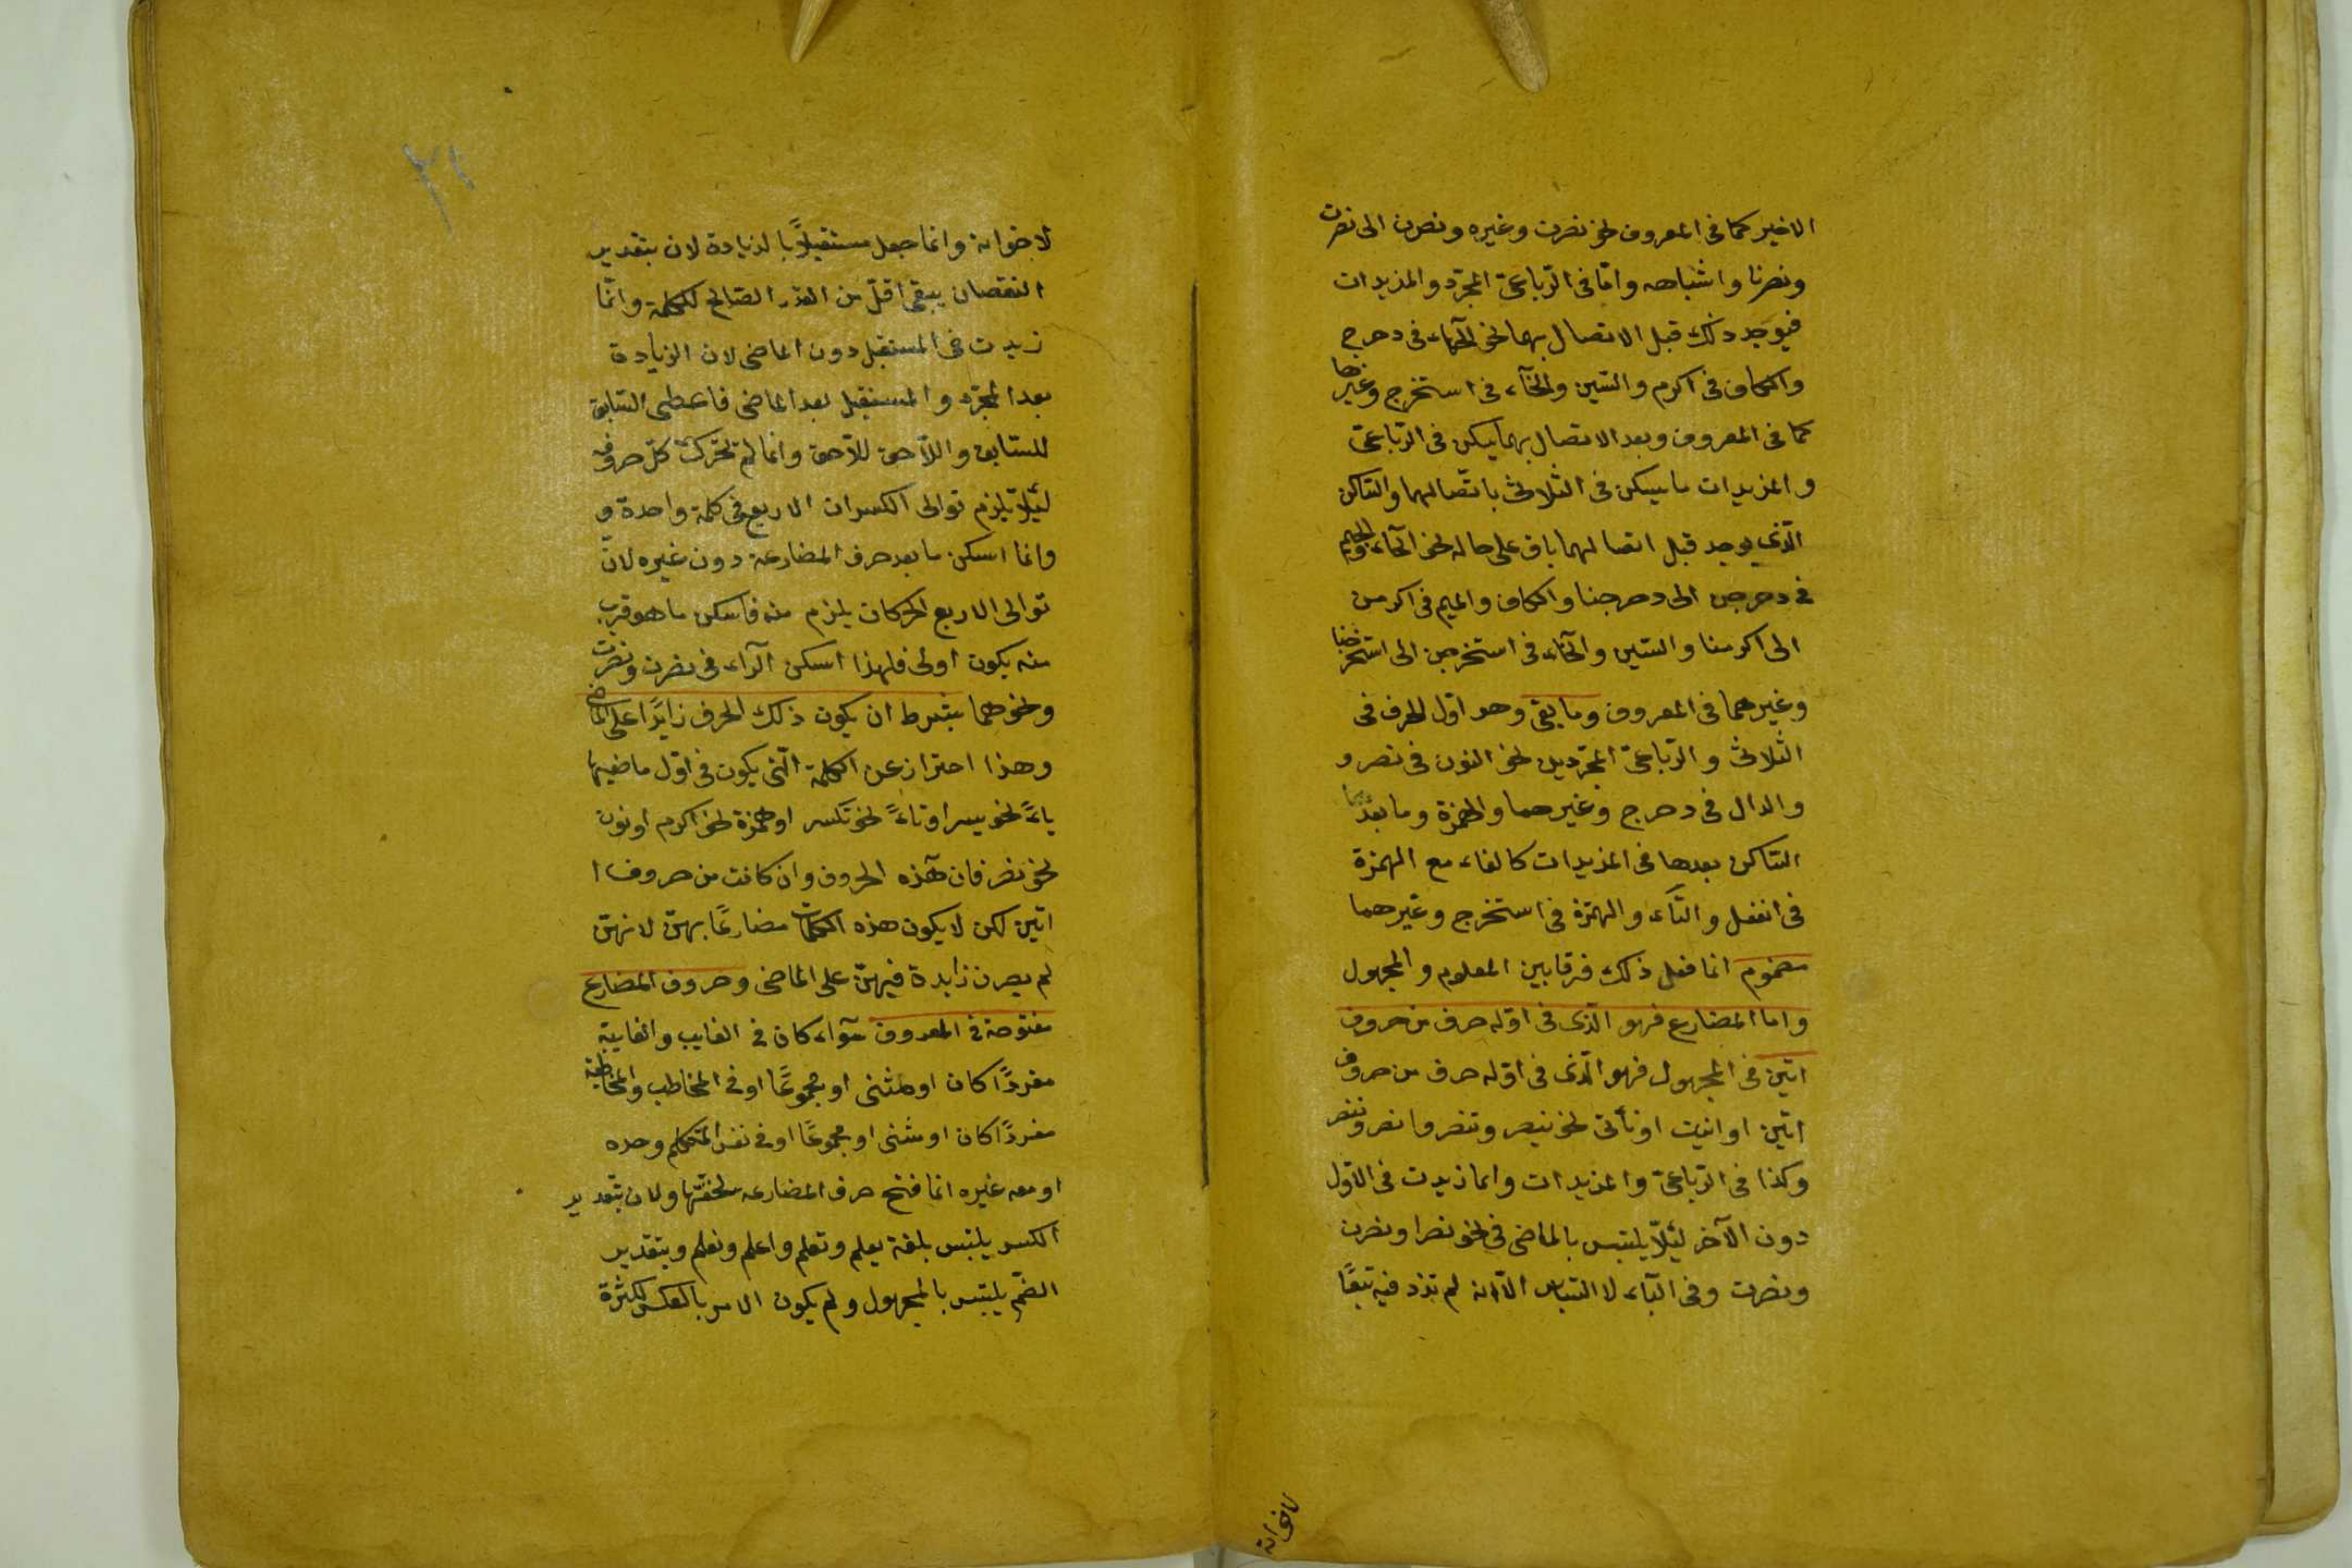 الاخير كما فى المعروف نحو نصرت وغيره ونصرن الى نصرت
ونصرنا واشباهه وامّا فى الرّباعىّ المجرّد والمزيدات
فيوجد ذلك قبل الاتصال بهما نحو الحاء فى دحرج
والكاف فى اكرم والسّين والخآء فى استخرج وغيرها
كما فى المعروف وبعد الاتصال بهما يسكن فى الرّباعىّ
والمزيدات ما يسكن فى الثلاثى باتّصالهما والسّاكن
الّذى يوجد قبل اتصالهما باق على حاله نحو الحآء والجيم
فى دحرجن الى دحرجنا والكاف والميم فى اكرمن
الى اكرمنا والسّين والخآء فى استخرجن الى استخرجنا
وغيرهما فى المعروف وما بقى وهو اوّل الحرف فى
الثّلاثىّ والرّباعىّ المجرّدين نحو النون فى نصر و
والدال فى دحرج وغيرهما والهمزة وما بعد
السّاكن بعدها فى المزيدات كالفاء مع الهمزة
فى انفعل والتّآء والهمزة فى استخرج وغيرهما
مضموم انما فعل ذلك فرقا بين المعلوم والمجهول
واما المضارع فهو الّذى فى اوّله حرف من حروف
اتين فى المجهول فهو الّذى فى اوّله حرف من حروف
اتين او انيت او نأتى نحو ينصر وتنصر وانصر وننصر
وكذا فى الرّباعىّ والمزيدات وانما زيدت فى الاوّل
دون الآخر لئلّا يلتبس بالماضى فى نحو نصرا ونصرن
ونصرت وفى اليآء لا التباس الّا انه لم تزد فيه تبعًا
لاخواته
لاخواته وانما جعل مستقبلًا بالزيادة لان بتقدير
النقصان يبقى اقلّ من القدر الصّالح للكلمة وانّما
زيدت فى المستقبل دون الماضى لان الزيادة
بعد المجرّد والمستقبل بعد الماضى فاعطى السّابق
للسّابق واللّاحق للّاحق وانما لم تحرّك كلّ حروفه
لئلّا يلزم توالى الكسرات الاربع فى كلمة واحدة و
وانما اسكن ما بعد حرف المضارعة دون غيره لانّ
توالى الاربع الحركات يلزم منه فاسكن ما هو قريب
منه يكون اولى فلهذا اسكن الرّاء فى نصرن ونصرت
ونحوهما بشرط ان يكون ذلك الحرف زايدًا على الماضى
وهذا احتراز عن الكلمة الّتى يكون فى اوّل ماضيها
ياءً نحو يسر او تاءً نحو تكسر او همزة نحو اكرم او نون
نحو نصر فان هذه الحروف وان كانت من حروف ا
اتين لكن لا يكون هذه الكلمات مضارعًا بهنّ لانهنّ
لم يصرن زايدة فيهنّ على الماضى وحروف المضارع
مفتوحة فى المعروف سوآء كان فى الغايب والغايبة
مفردًا كان او مثنى او مجموعًا او فى المخاطب والمخاطبة
مفردًا كان او مثنى او مجموعًا او فى نفس المتكلم وحده
او معه غيره انما فتح حرف المضارعه لخفّتها ولان بتقدير
الكسر يلتبس بلغة يعلم وتعلم واعلم ونعلم وبتقدير
الضّم يلتبس بالمجهول ولم يكون الامر بالعكس لكثرة